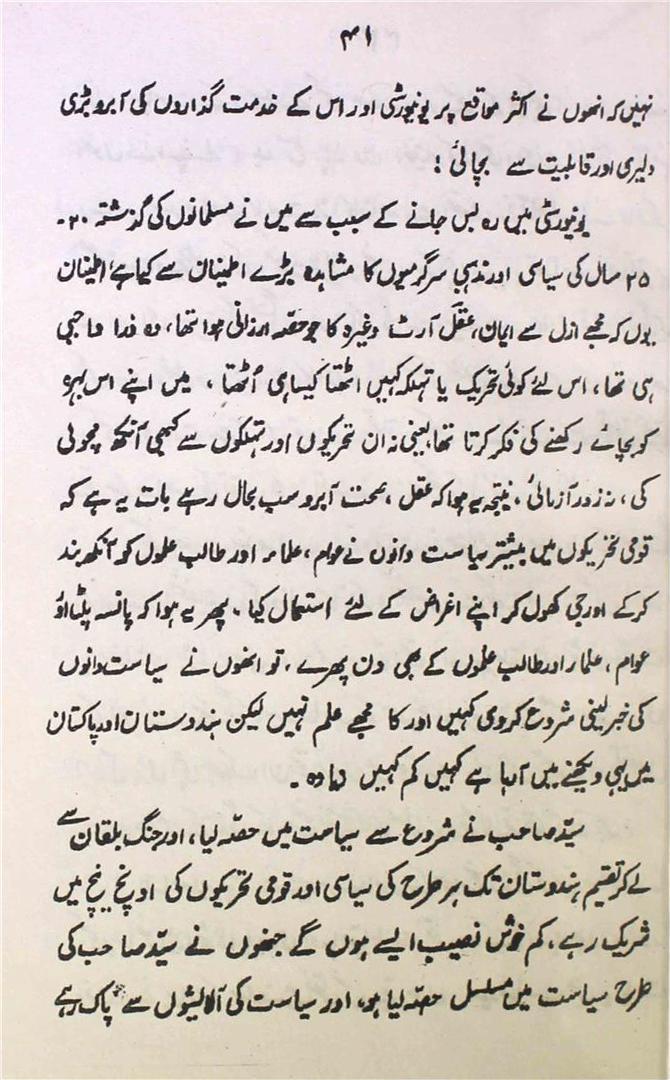 ۴۱
نہیں کہ انھوں نے اکثر مواقع پر یونیورسٹی اور اس کے خدمت گذاروں کی آبرو بڑی
دلیری اور قابلیت سے بچائی :
یونیورسٹی میں رہ بس جانے کے سبب سے میں نے مسلمانوں کی گذشتہ ۲۰۔
۲۵ سال کی سیاسی اور مذہبی سرگرمیوں کا مشاہدہ بڑے اطینان سے کیا ہے اطینان
یوں کہ مجھے ازل سے ایمان، عقل آرٹ وغیرہ کا جو حصّہ ارزانی ہوا تھا، وہ ذرا واجبی
ہی تھا، اس لئے کوئی تحریک یا تہلکہ کہیں اٹھتا کیسا ہی اُٹھتا ، میں اپنے اس بہرہ
کو بچائے رکھنے کی فکر کرتا تھا یعنی نہ ان تحریکوں اور تہلکوں سے کبھی آنکھ مچولی
کی، نہ زور آزمائی، نتیجہ یہ ہوا کہ عقل ، صحت آبرو سب بحال رہے بات یہ ہے کہ
قومی تحریکوں میں بیشتر سیاست دانوں نے عوام ، علماء اور طالب علموں کو آنکھ بند
کرکے اور جی کھول کر اپنے اغراض کے لئے استعمال کیا ۔ پھر یہ ہوا کہ پانسہ پلٹا اور
عوام ، علماء اور طالب علموں کے بھی دن پھرے ، تو انھوں نے سیاست دانوں
کی خبر لینی شروع کردی کہیں اور کا مجھے علم نہیں لیکن ہندوستان اور پاکستان
میں یہی دیکھنے میں آرہا ہے کہیں کم کہیں زیادہ ۔
سیّد صاحب نے شروع سے سیاست میں حصّہ لیا، اور جنگ بلقان سے
لے کر تقیم ہندوستان تک ہر طرح کی سیاسی اور قومی تحریکوں کی اونچ نیچ میں
شریک رہے ، کم خوش نصیب ایسے ہوں گے جنھوں نے سیّد صاحب کی
طرح سیاست میں مسلسل حصّہ لیا ہو، اور سیاست کی آلائیشوں سے پاک رہے